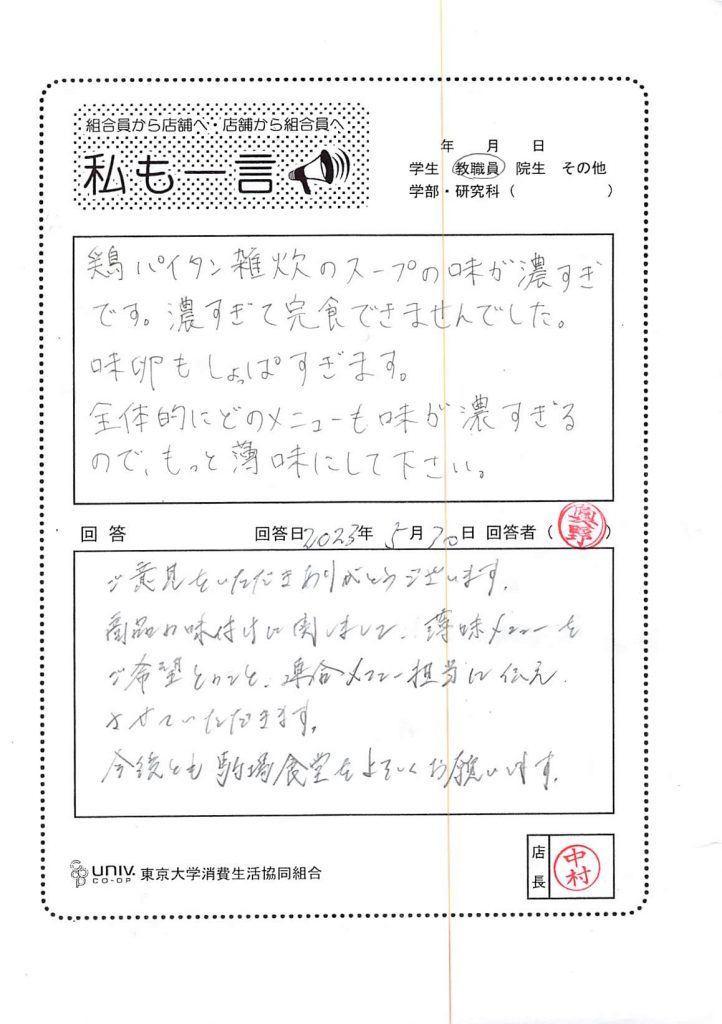 組合員から店舗へ・店舗から組合員へ
私も一言
年 月 日
学生 教職員 院生 その他
学部・研究科( )
鶏パイタン雑炊のスープの味が濃すぎ
です。濃すぎて完食できませんでした。
味卵もしょっぱすぎます。
全体的にどのメニューも味が濃すぎる
ので、もっと薄味にして下さい。
回答 回答日2023年 5月30日 回答者( 奥野 )
ご意見をいただきありがとうございます。
商品の味付けに関しまして、薄味メニューを
ご希望とのこと、連合メニュー担当に伝え
させていただきます。
今後とも駒場食堂をよろしくお願いします。
店長 中村
UNIV. CO-OP 東京大学消費生活協同組合